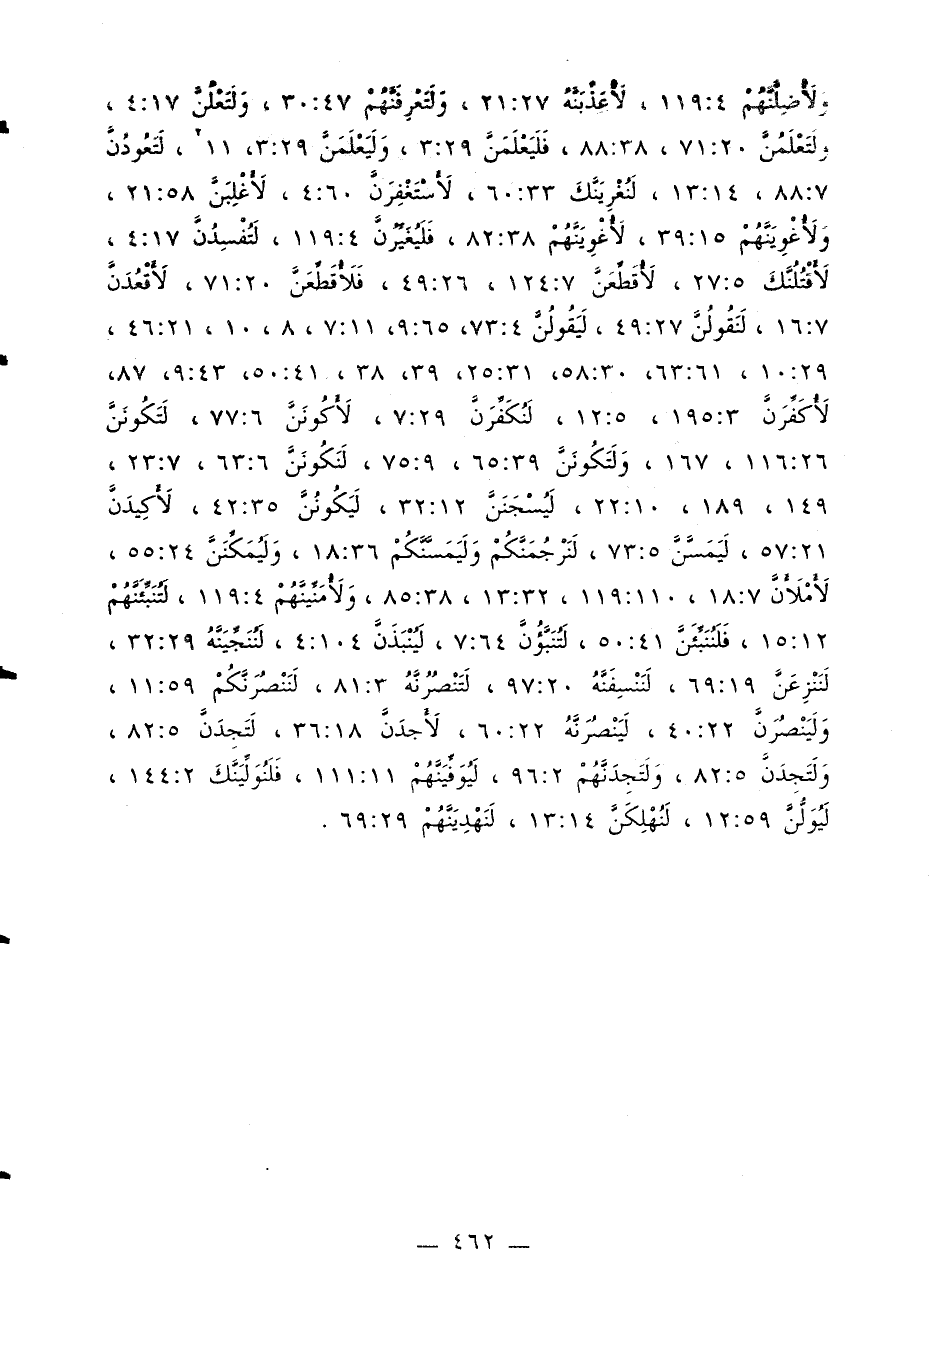 وَلَأُضِلَّنَّهُمْ ٤:١١٩ ، لَأُعَذِّبَنَّهُ ٢٧:٢١ ، وَلَتَعْرِفَنَّهُمْ ٤٧:٣٠ ، وَلَتَعْلُنَّ ١٧:٤ ،
وَلَتَعْلَمُنَّ ٢٠:٧١ ، ٣٨:٨٨ ، فَلَيَعْلَمَنَّ ٢٩:٣ ، وَلَيَعْلَمَنَّ ٢٩:٣، ١١ ٢ ، لَتَعُودُنَّ
٧:٨٨ ، ١٤:١٣ ، لَنُغْرِيَنَّكَ ٣٣:٦٠ ، لَأَسْتَغْفِرَنَّ ٦٠:٤ ، لَأَغْلِبَنَّ ٥٨:٢١ ،
وَلَأُغْوِيَنَّهُمْ ١٥:٣٩ ، لَأُغْوِيَنَّهُمْ ٣٨:٨٢ ، فَلَيُغَيِّرُنَّ ٤:١١٩ ، لَتُفْسِدُنَّ ١٧:٤ ،
لَأَقْتُلَنَّكَ ٥:٢٧ ، لَأُقَطِّعَنَّ ٧:١٢٤ ، ٢٦:٤٩ ، فَلَأُقَطِّعَنَّ ٢٠:٧١ ، لَأَقْعُدَنَّ
٧:١٦ ، لَنَقُولَنَّ ٢٧:٤٩ ، لَيَقُولَنَّ ٤:٧٣، ٩:٦٥، ١١:٧ ، ٨ ، ١٠ ، ٢١:٤٦ ،
٢٩:١٠ ، ٦١:٦٣، ٣٠:٥٨، ٣١:٢٥، ٣٩، ٣٨ ، ٤١:٥٠، ٤٣:٩، ٨٧،
لَأُكَفِّرَنَّ ٣:١٩٥ ، ٥:١٢ ، لَنُكَفِّرَنَّ ٢٩:٧ ، لَأَكُونَنَّ ٦:٧٧ ، لَتَكُونَنَّ
٢٦:١١٦ ، ١٦٧ ، وَلَتَكُونَنَّ ٣٩:٦٥ ، ٩:٧٥ ، لَنَكُونَنَّ ٦:٦٣ ، ٧:٢٣ ،
١٤٩ ، ١٨٩ ، ١٠:٢٢ ، لَيُسْجَنَنَّ ١٢:٣٢ ، لَيَكُونُنَّ ٣٥:٤٢ ، لَأَكِيدَنَّ
٢١:٥٧ ، لَيَمَسَّنَّ ٥:٧٣ ، لَنَرْجُمَنَّكُمْ وَلَيَمَسَّنَّكُمْ ٣٦:١٨ ، وَلَيُمَكِّنَنَّ ٢٤:٥٥ ،
لَأَمْلَأَنَّ ٧:١٨ ، ١١:١١٩ ، ٣٢:١٣ ، ٣٨:٨٥ ، وَلَأُمَنِّيَنَّهُمْ ٤:١١٩ ، لَتُنَبِّئَنَّهُمْ
١٢:١٥ ، فَلَنُنَبِّئَنَّ ٤١:٥٠ ، لَتُنَبَّؤُنَّ ٦٤:٧ ، لَيُنْبَذَنَّ ١٠٤:٤ ، لَنُنَجِّيَنَّهُ ٢٩:٣٢ ،
لَنَنْزِعَنَّ ١٩:٦٩ ، لَنَنْسِفَنَّهُ ٢٠:٩٧ ، لَتَنْصُرُنَّهُ ٣:٨١ ، لَنَنْصُرَنَّكُمْ ٥٩:١١ ،
وَلَيَنْصُرَنَّ ٢٢:٤٠ ، لَيَنْصُرَنَّهُ ٢٢:٦٠ ، لَأَجِدَنَّ ١٨:٣٦ ، لَتَجِدَنَّ ٥:٨٢ ،
وَلَتَجِدَنَّ ٥:٨٢ ، وَلَتَجِدَنَّهُمْ ٢:٩٦ ، لَيُوَفِّيَنَّهُمْ ١١:١١١ ، فَلَنُوَلِّيَنَّكَ ٢:١٤٤ ،
لَيُوَلُّنَّ ٥٩:١٢ ، لَنُهْلِكَنَّ ١٤:١٣ ، لَنَهْدِيَنَّهُمْ ٢٩:٦٩ .
— ٤٦٢ —